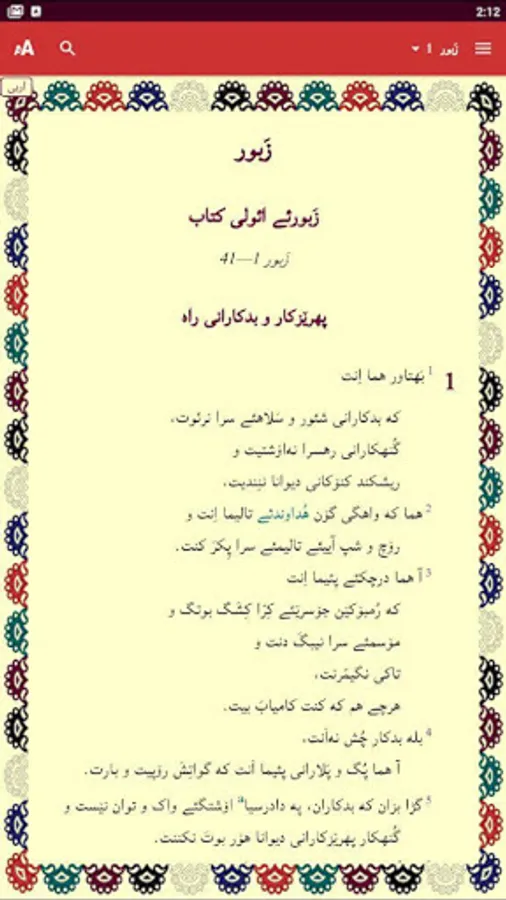 2:12
AA
زَبور 1
اَربی
زَبور
زَبورئے ائولی کتاب
زَبور 1—41
پهرێزکار و بدکارانی راه
1 ¹ بَهتاور هما اِنت
که بدکارانی شئور و سَلاهئے سرا نرئوت،
گُنهکارانی رهسرا نه‌اۆشتیت و
ریشکند کنۆکانی دیوانا ننِندیت،
² هما که واهگی گۆن هُداوندئے تالیما اِنت و
رۆچ و شپ آییئے تالیمئے سرا پِکرَ کنت.
³ آ هما درچکئے پئیما اِنت
که رُمبۆکێن جۆسرێئے کِرّا کِشگ بوتگ و
مۆسمئے سرا نیبگَ دنت و
تاکی نگیمّرنت،
هرچے هم که کنت کامیابَ بیت.
⁴ بله بدکار چُش نه‌اَنت،
آ هما پُگ و پَلارانی پئیما اَنت که گواتِش رۆپیت و بارت.
⁵ گڑا بزان که بدکاران، په دادرسیاᵃ اۆشتگئے واک و توان نێست و
گُنهکار پهرێزکارانی دیوانا هۆر بوتَ نکننت.